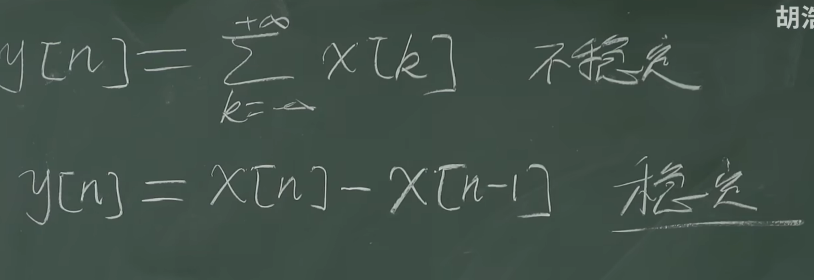 胡浩
y[n] = \sum_{k=-\infty}^{+\infty} x[k] 不稳定
y[n] = x[n] - x[n-1] 稳定